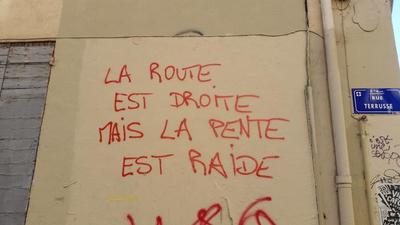 LA ROUTE
EST DROITE
MAIS LA PENTE
EST RAIDE
RUE
TERRUSSE
c'est
une